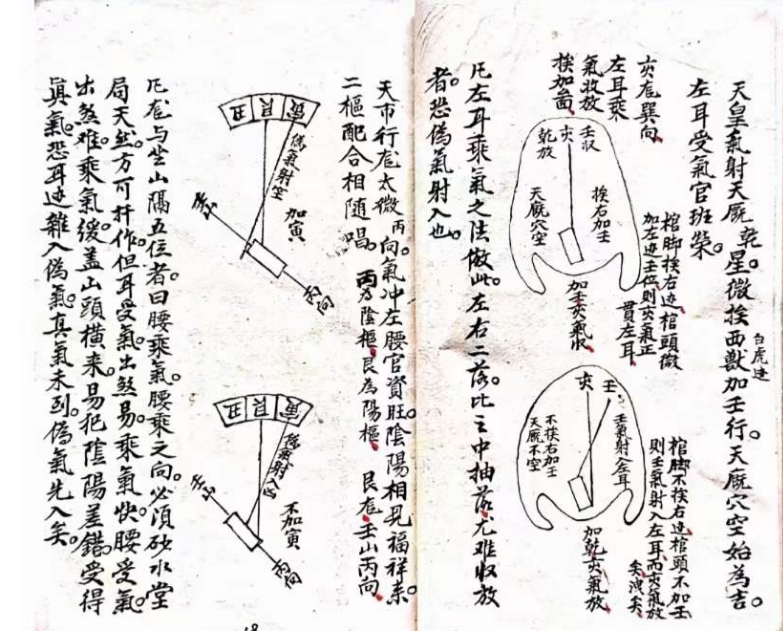 天皇氣射天廐乾星微挨西獸加壬行天廐穴空始為吉
白虎邊
左耳受氣官班榮
亥龙巽向
左耳乘
氣收放
挨加啚
壬収
亥
乾放
挨右加壬
天廐穴空
加壬亥氣収
棺脚挨右边棺頭微
加左边壬位則亥氣正
貫左耳
亥
壬
壬氣射入左耳
不挨右加壬
天廐不空
加乾亥氣放
棺脚不挨右边棺頭不加壬
則壬氣射入左耳而亥氣放
矣洩矣
凡左耳乘氣之法倣此左右二落比之中抽落尤难収放
者恐偽氣射入也
天市行龙太微丙向氣冲左腰官資旺陰陽相見福祥系
二樞配合相随唱丙為陰樞艮為陽樞 艮龙壬山丙向
丑艮寅
偽氣射空
加寅
壬山
丙向
丑艮寅
偽氣射入凶
不加寅
壬山
丙向
凡龙与坐山隔五位者曰腰乘氣腰乘之向必湏砂水堂
局天然方可扦作但耳受氣出煞易乘氣快腰受氣
出煞难乘氣缓盖山頭横来易犯陰陽差錯受得
真氣恐耳边雜入偽氣真氣未到偽氣先入矣